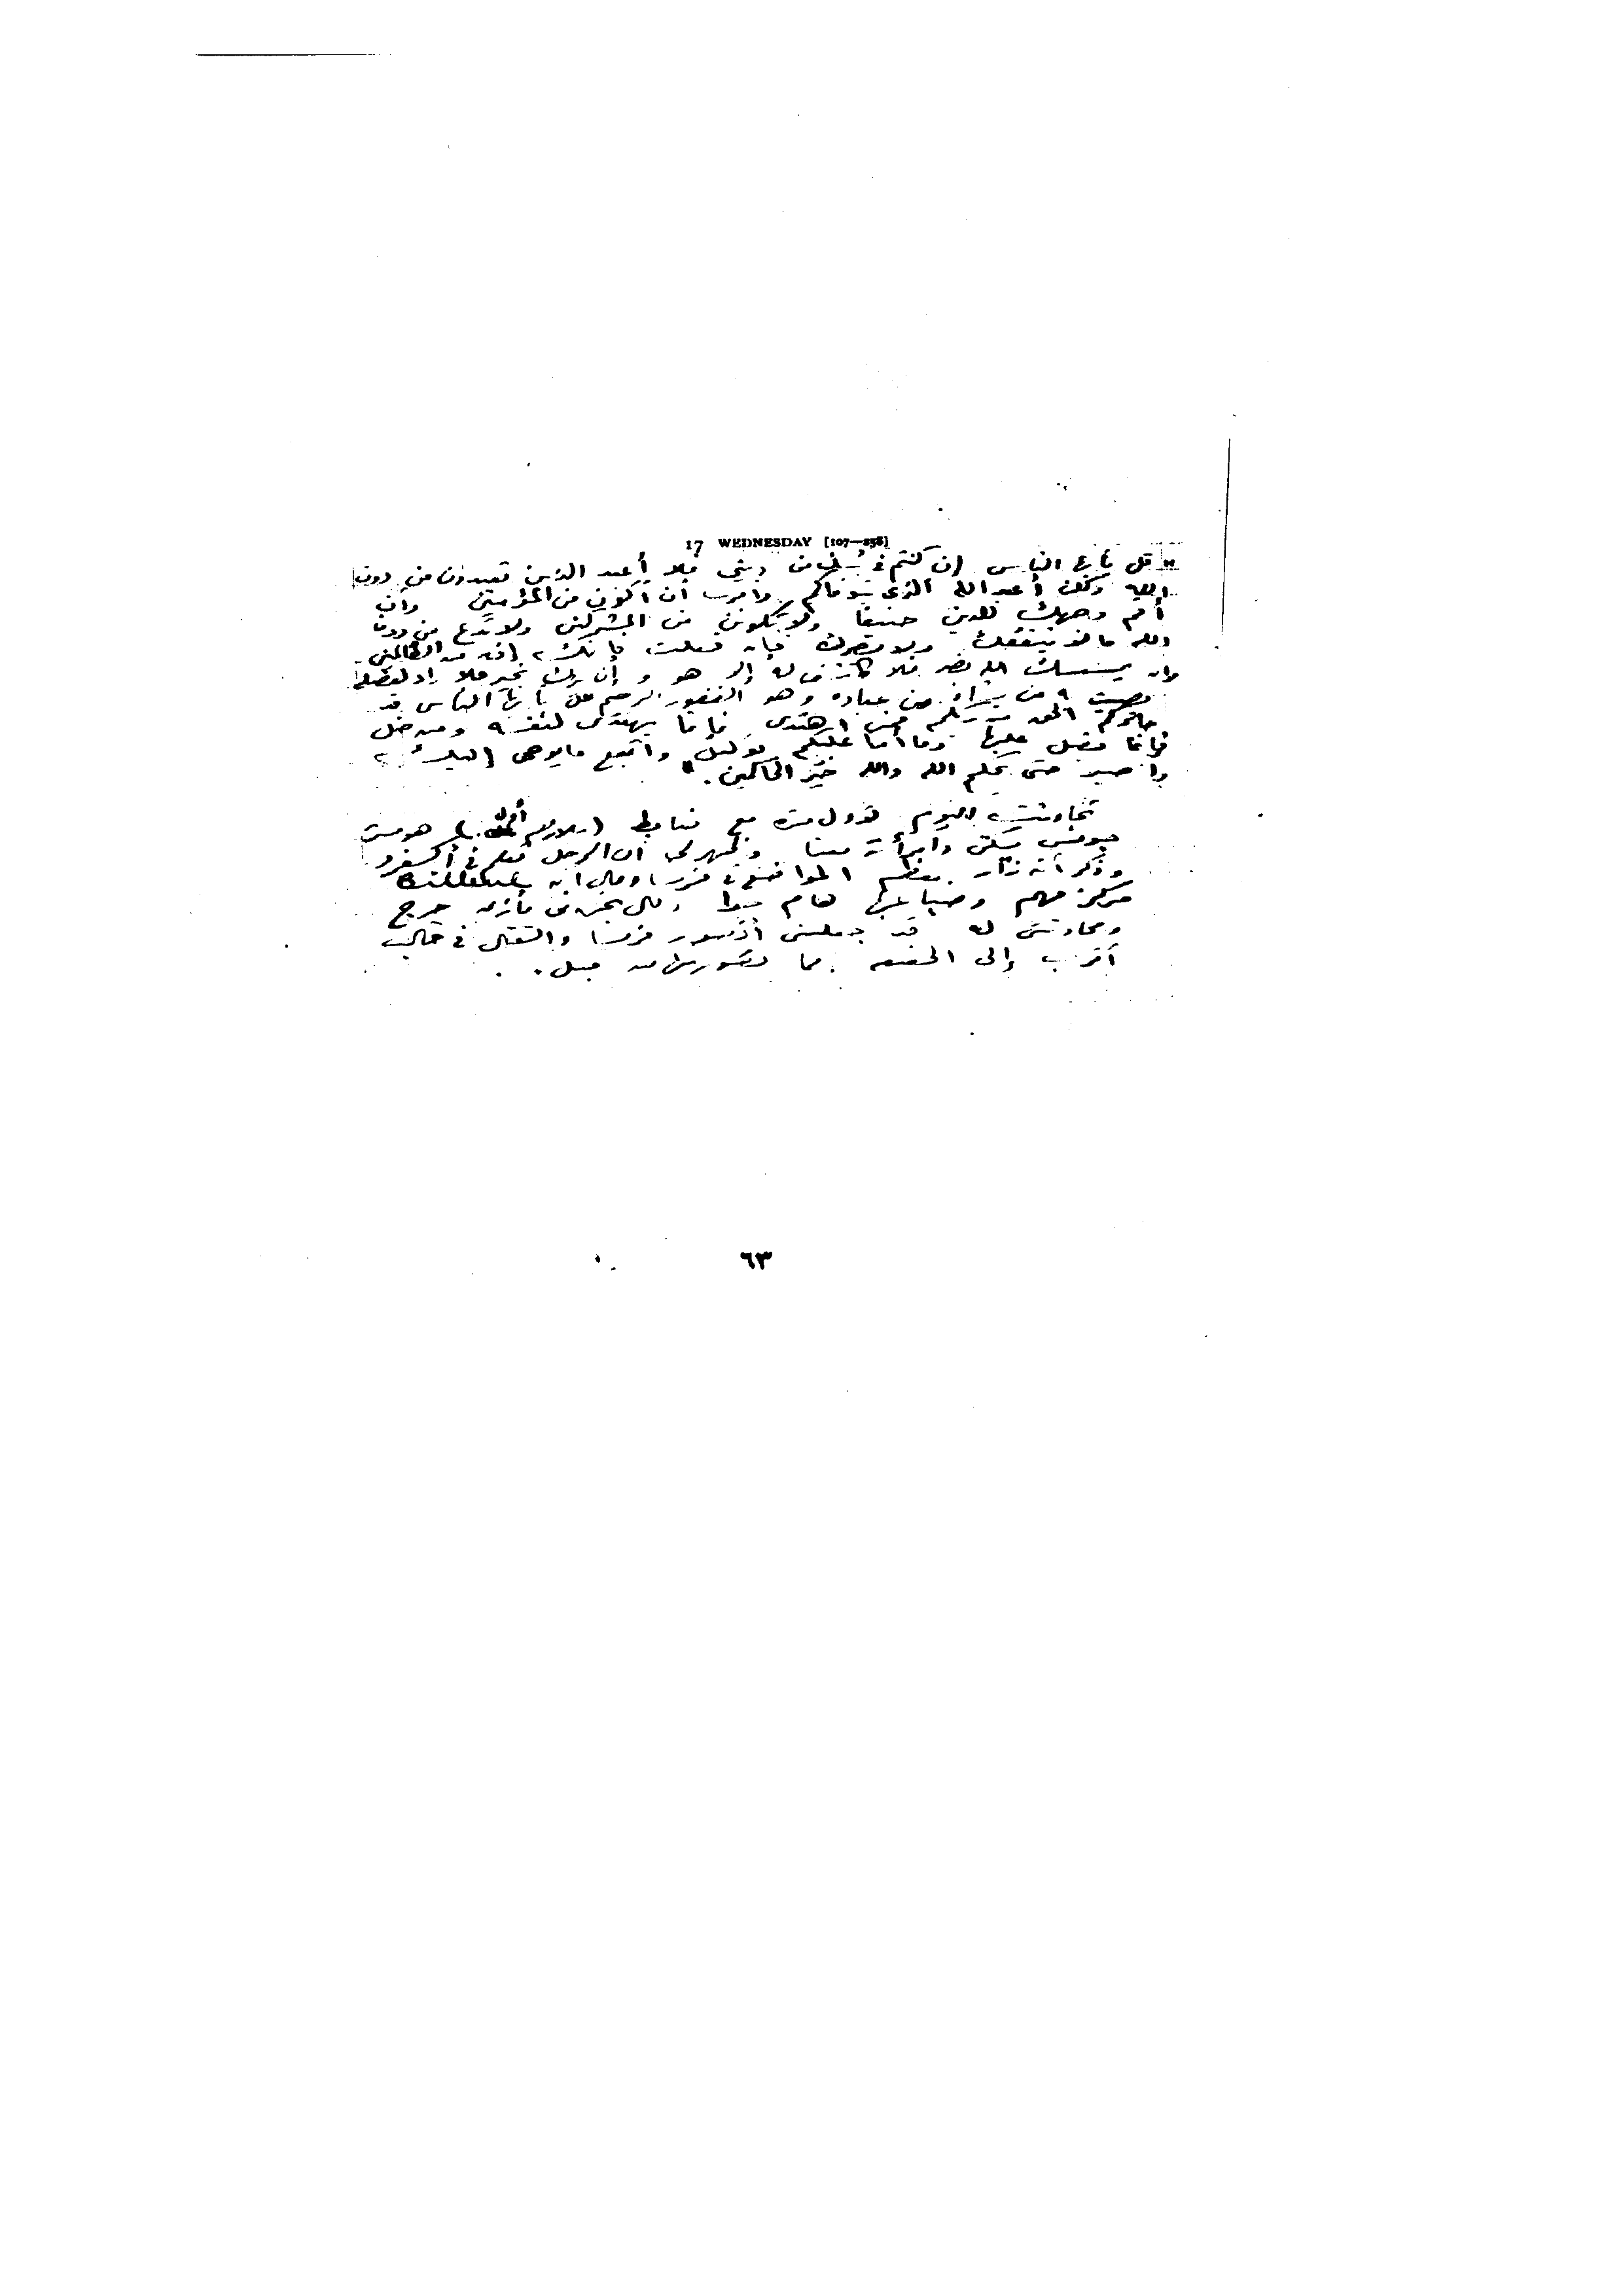 17 WEDNESDAY [107—258]
" قل يأيها الناس إن كنتم في شك من ديني فلا أعبد الذين تعبدون من دون
الله ولكن أعبد الله الذي يتوفاكم وأمرت أن أكون من المؤمنين وأن
أقم وجهك للدين حنيفا ولا تكونن من المشركين ولا تدع من دون
الله ما لا ينفعك ولا يضرك فإن فعلت فإنك إذن من الظالمين
وإن يمسسك الله بضر فلا كاشف له إلا هو و إن يردك بخير فلا راد لفضله
يصيب به من يشاء من عباده وهو الغفور الرحيم قل يأيها الناس قد
جاءكم الحق من ربكم فمن اهتدى فإنما يهتدى لنفسه ومن ضل
فإنما يضل عليها وما أنا عليكم بوكيل واتبع ما يوحى إليك
واصبر حتى يحكم الله والله خير الحاكمين . "
تحادثت اليوم لأول مرة مع ضابط
يسكن معنا وظهر لي أن الرجل تعلم في أكسفورد
وذكر أنه زار معظم المواقع
مركز مهم وضياعها هام مأزق حرج
ومحادثتى له قد جعلتنى أتصور فرنسا والقتال في قالب
أقرب إلى الحقيقة مما تصورته من قبل .
٦٣